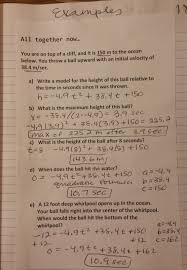 Examples
All together now..
You are on top of a cliff, and it is 150 m to the ocean
below. You throw a ball upward with an initial velocity of
38.4 m/sec.
a) Write a model for the height of this ball relative to
the time in seconds since it was thrown.
h = -4.9t² + 38.4t + 150
b) What is the maximum height of this ball?
-4.9(3.9)² + 38.4(3.9) + 150 = 225.2
225.2 m after 3.9 sec
c) What is the height of the ball after 8 seconds?
-4.9(8)² + 38.4(8) + 150
143.6 m
d) When does the ball hit the water?
0 = -4.9t² + 38.4t + 150
quadratic formula
10.7 sec
a = -4.9
b = 38.4
c = 150
e) A 12 foot deep whirlpool opens up in the ocean.
Your ball falls right into the center of the whirlpool.
When would the ball hit the bottom of the
whirlpool?
-12 = -4.9t² + 38.4t + 150
+12 +12
0 = -4.9t² + 38.4t + 162
10.9 sec